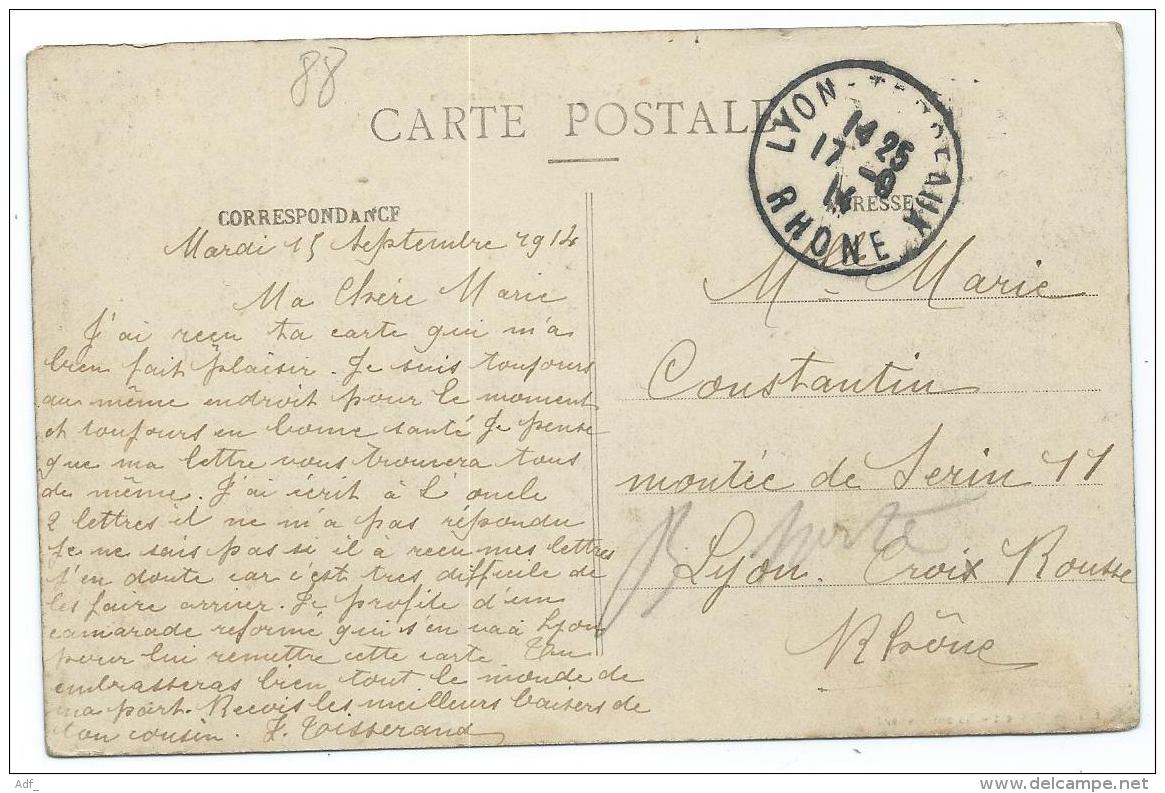 88
CARTE POSTALE
LYON-TERREAUX
14 25
17 -9
14
RHONE
CORRESPONDANCE
ADRESSE
Mardi 15 Septembre 1914
Ma Chère Marie
J'ai reçu ta carte qui m'a
bien fait plaisir. Je suis toujours
au même endroit pour le moment
et toujours en bonne santé Je pense
que ma lettre vous trouvera tous
de même. J'ai écrit à L'oncle
2 lettres il ne m'a pas répondu
Je ne sais pas si il à reçu mes lettres
J'en doute car c'est tres difficile de
les faire arriver. Je profite d'un
camarade reformé qui s'en va à Lyon
pour lui remettre cette carte Tu
embrasseras bien tout le monde de
ma part. Recois les meilleurs baisers de
ton cousin. J. Tisserand
Mlle Marie
Constantin
montée de Serin 11
Lyon. Croix Rousse
Rhône
Adf_
www.delcampe.net